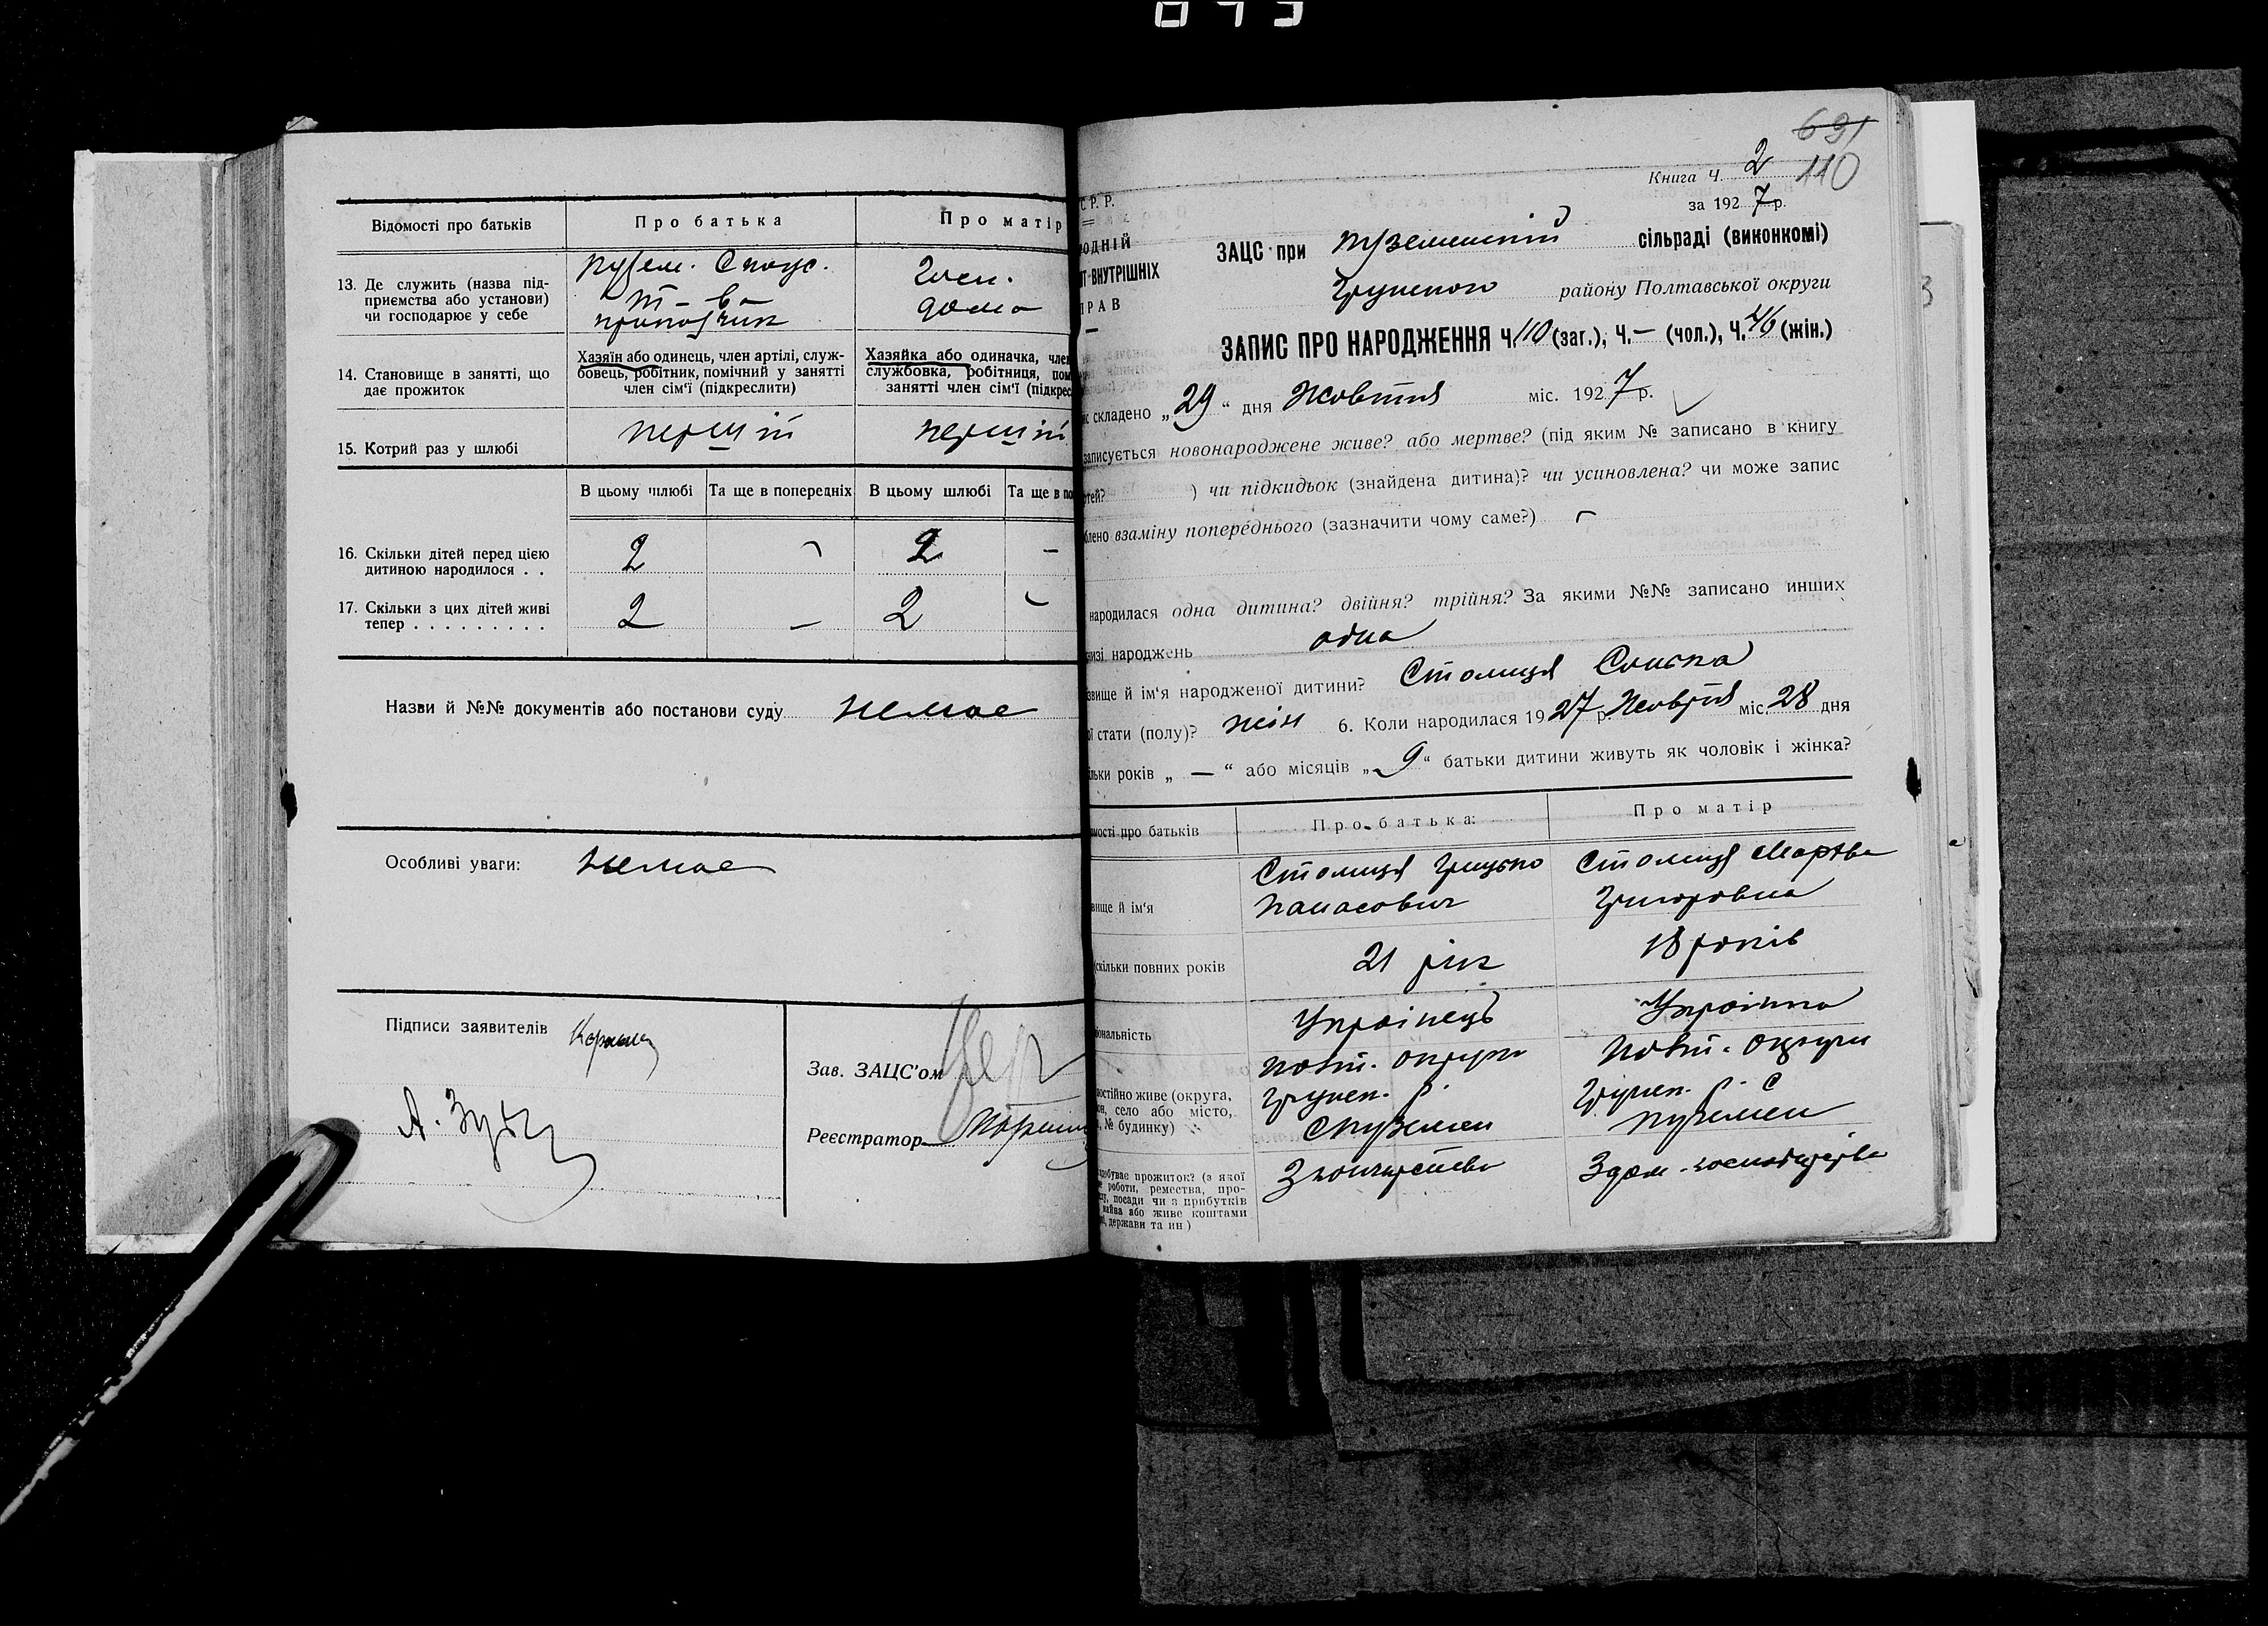 Відомості про батьків
Про батька
Про матір
13. Де служить (назва під-
приємства або установи)
чи господарює у себе
Т-ва
Госп.
дома
14. Становище в занятті, що
дає прожиток
Хазяїн або одинець, член артілі, служ-
бовець, робітник, помічний у занятті
член сім'ї (підкреслити)
Хазяйка або одиначка, член
службовка, робітниця, пом
занятті член сім'ї (підкрес
15. Котрий раз у шлюбі
перший
перший
В цьому шлюбі
Та ще в попередніх
В цьому шлюбі
Та ще в по
16. Скільки дітей перед цією
дитиною народилося . .
2
-
2
-
17. Скільки з цих дітей живі
тепер . . . . . . . . .
2
-
2
-
Назви й №№ документів або постанови суду немає
Особливі уваги: немає
Підписи заявителів
Зав. ЗАЦС'ом
Реєстратор
691
110
Книга Ч. 2
за 1927 р.
С.Р.Р.
ОДНІЙ
Т ВНУТРІШНІХ
РАВ
ЗАЦС при Куземенській сільраді (виконкомі)
Грунского району Полтавської округи
ЗАПИС ПРО НАРОДЖЕННЯ Ч. 110 (заг.), Ч. — (чол.), Ч. 46 (жін.)
складено „29“ дня Жовтня міс. 1927 р.
записується новонароджене живе? або мертве? (під яким № записано в книгу
ртей? ) чи підкидьок (знайдена дитина)? чи усиновлена? чи може запис
блено взаміну попереднього (зазначити чому саме?) -
народилася одна дитина? двійня? трійня? За якими №№ записано инших
низі народжень одна
звище й ім'я народженої дитини? Столиця Сонька
ої стати (полу)? жін 6. Коли народилася 1927 р. Жовтня міс. 28 дня
льки років „ — “ або місяців „9“ батьки дитини живуть як чоловік і жінка?
мості про батьків
Про батька:
Про матір
вище й ім'я
Столиця Грицько
Панасович
Столиця Марфа
Григоровна
скільки повних років
21 рік
18 років
іональність
Українець
Українка
постійно живе (округа,
он, село або місто,
, № будинку)
Полт. округи
Грунск. р.
с Куземен
Полт. округи
Грунск. р. с
Куземен
добуває прожиток? (з якої
роботи, ремества, про-
у, посади чи з прибутків
майва або живе коштами
, держави та ин.)
З дом. господарства